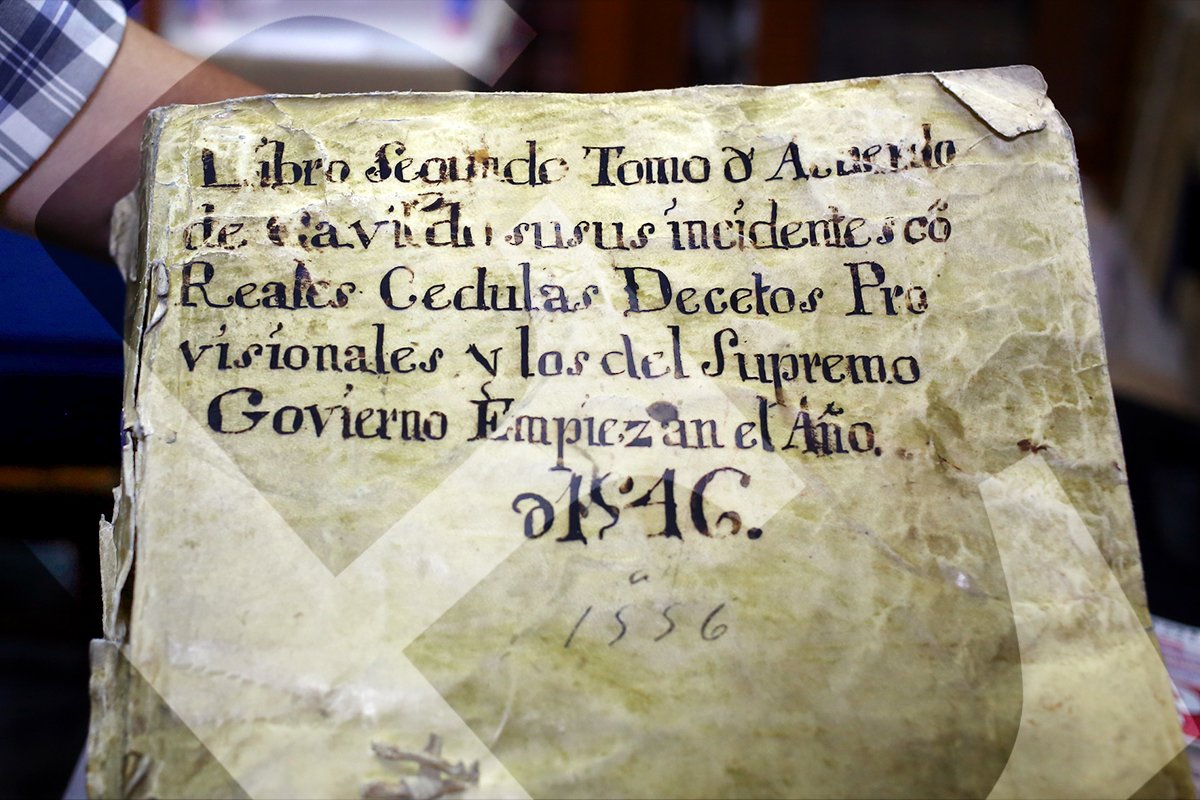 Libro Segundo Tomo d Acuerdo
de Cavildo susus incidentes cõ
Reales Cedulas Decetos Pro
visionales y los del Supremo
Govierno Empiezan el Año.
d 1546.
a
1556